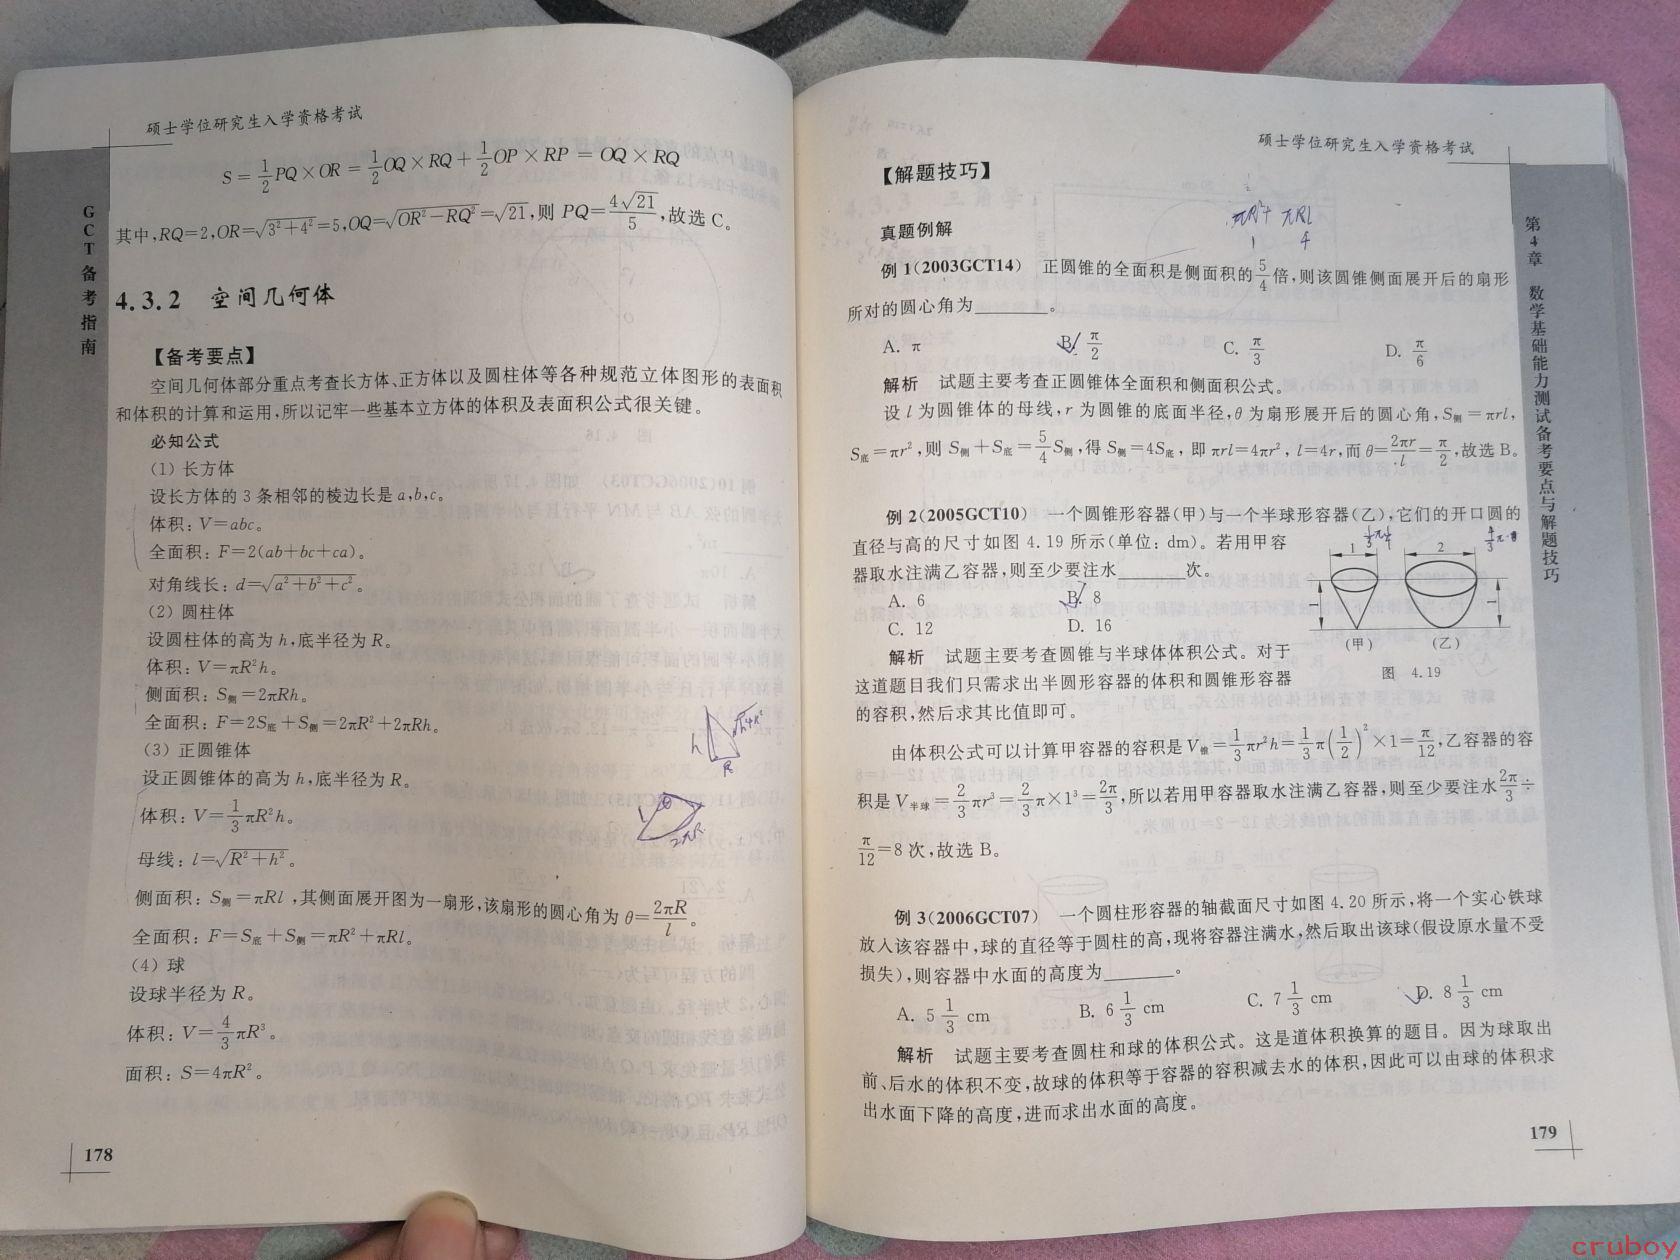 硕士学位研究生入学资格考试
GCT备考指南
S=1/2PQ×OR=1/2OQ×RQ+1/2OP×RP=OQ×RQ
其中,RQ=2,OR=√(3²+4²)=5,OQ=√(OR²−RQ²)=√21,则 PQ=4√21/5,故选 C。
4.3.2 空间几何体
【备考要点】
空间几何体部分重点考查长方体、正方体以及圆柱体等各种规范立体图形的表面积
和体积的计算和运用,所以记牢一些基本立方体的体积及表面积公式很关键。
必知公式
(1) 长方体
设长方体的 3 条相邻的棱边长是 a,b,c。
体积: V=abc。
全面积: F=2(ab+bc+ca)。
对角线长: d=√(a²+b²+c²)。
(2) 圆柱体
设圆柱体的高为 h,底半径为 R。
体积: V=πR²h。
侧面积: S侧=2πRh。
全面积: F=2S底+S侧=2πR²+2πRh。
(3) 正圆锥体
设正圆锥体的高为 h,底半径为 R。
体积: V=1/3πR²h。
母线: l=√(R²+h²)。
侧面积: S侧=πRl ,其侧面展开图为一扇形,该扇形的圆心角为 θ=2πR/l。
全面积: F=S底+S侧=πR²+πRl。
(4) 球
设球半径为 R。
体积: V=4/3πR³。
面积: S=4πR²。
h
R
2πR
178
硕士学位研究生入学资格考试
第4章 数学基础能力测试备考要点与解题技巧
【解题技巧】
πR²+πRl
1 4
真题例解
例 1(2003GCT14) 正圆锥的全面积是侧面积的5/4倍,则该圆锥侧面展开后的扇形
所对的圆心角为______。
A. π B. π/2 C. π/3 D. π/6
解析 试题主要考查正圆锥体全面积和侧面积公式。
设 l 为圆锥体的母线,r 为圆锥的底面半径,θ 为扇形展开后的圆心角,S侧=πrl,
S底=πr²,则 S侧+S底=5/4S侧,得 S侧=4S底,即 πrl=4πr²,l=4r,而 θ=2πr/l=π/2,故选 B。
例 2(2005GCT10) 一个圆锥形容器(甲)与一个半球形容器(乙),它们的开口圆的
直径与高的尺寸如图 4.19 所示(单位: dm)。若用甲容
器取水注满乙容器,则至少要注水______次。
A. 6 B. 8
C. 12 D. 16
1 2
1 1
(甲) (乙)
图 4.19
解析 试题主要考查圆锥与半球体体积公式。对于
这道题目我们只需求出半圆形容器的体积和圆锥形容器
的容积,然后求其比值即可。
由体积公式可以计算甲容器的容积是 V锥=1/3πr²h=1/3π(1/2)²×1=π/12,乙容器的容
积是 V半球=2/3πr³=2/3π×1³=2π/3,所以若用甲容器取水注满乙容器,则至少要注水2π/3÷
π/12=8 次,故选 B。
例 3(2006GCT07) 一个圆柱形容器的轴截面尺寸如图 4.20 所示,将一个实心铁球
放入该容器中,球的直径等于圆柱的高,现将容器注满水,然后取出该球(假设原水量不受
损失),则容器中水面的高度为______。
A. 5 1/3 cm B. 6 1/3 cm C. 7 1/3 cm D. 8 1/3 cm
解析 试题主要考查圆柱和球的体积公式。这是道体积换算的题目。因为球取出
前、后水的体积不变,故球的体积等于容器的容积减去水的体积,因此可以由球的体积求
出水面下降的高度,进而求出水面的高度。
179
cruboy